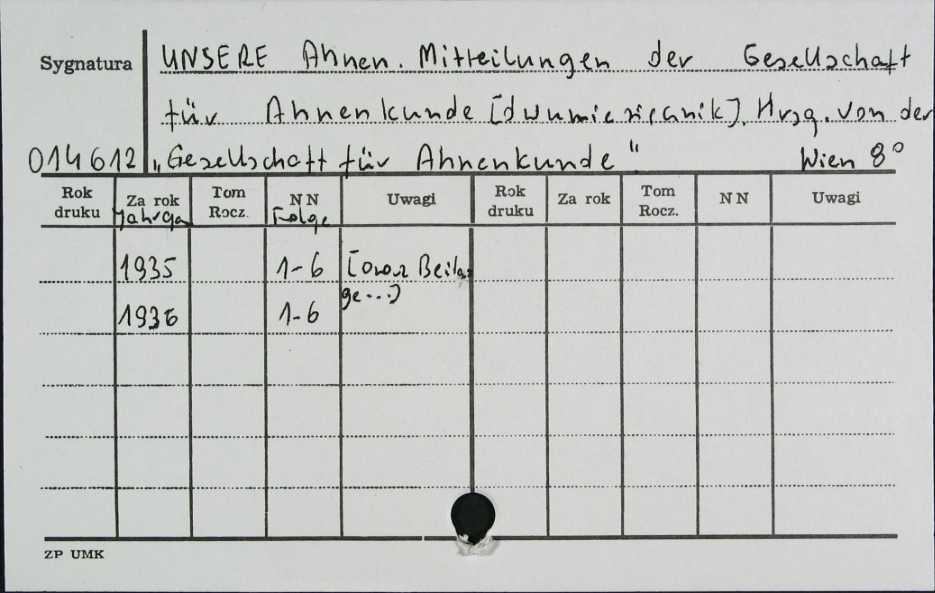 Sygnatura
UNSERE Ahnen. Mitteilungen der Gesellschaft
für Ahnenkunde [dwumiesięcznik]. Hrsg. von der
014612 „Gesellschaft für Ahnenkunde" Wien 8°
Rok druku Za rok Tom Rocz. NN Uwagi Rok druku Za rok Tom Rocz. NN Uwagi
Jahrga Folge
1935 1-6 [oraz Beila-
ge...]
1936 1-6
ZP UMK